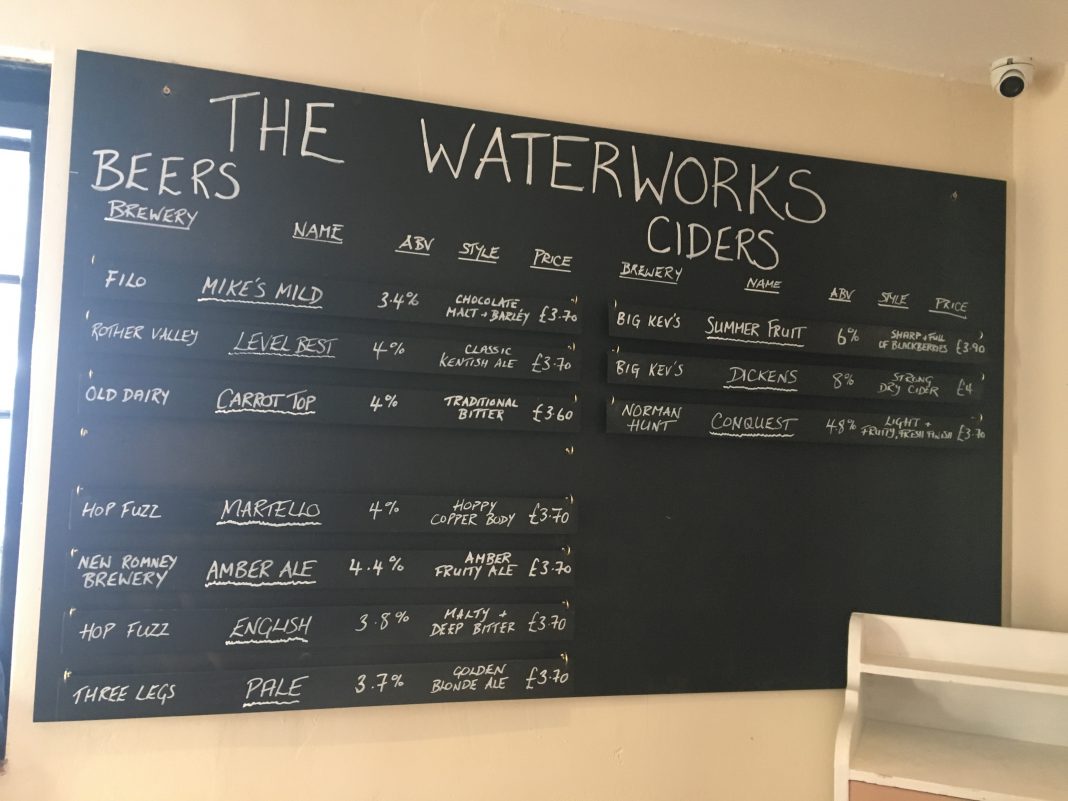 THE WATERWORKS
BEERS
BREWERY NAME ABV STYLE PRICE
FILO MIKE'S MILD 3.4% CHOCOLATE MALT + BARLEY £3.70
ROTHER VALLEY LEVEL BEST 4% CLASSIC KENTISH ALE £3.70
OLD DAIRY CARROT TOP 4% TRADITIONAL BITTER £3.60
HOP FUZZ MARTELLO 4% HOPPY COPPER BODY £3.70
NEW ROMNEY BREWERY AMBER ALE 4.4% AMBER FRUITY ALE £3.70
HOP FUZZ ENGLISH 3.8% MALTY + DEEP BITTER £3.70
THREE LEGS PALE 3.7% GOLDEN BLONDE ALE £3.70
CIDERS
BREWERY NAME ABV STYLE PRICE
BIG KEV'S SUMMER FRUIT 6% SHARP + FULL OF BLACKBERRIES £3.90
BIG KEV'S DICKENS 8% STRONG DRY CIDER £4
NORMAN HUNT CONQUEST 4.8% LIGHT + FRUITY, FRESH FINISH £3.70